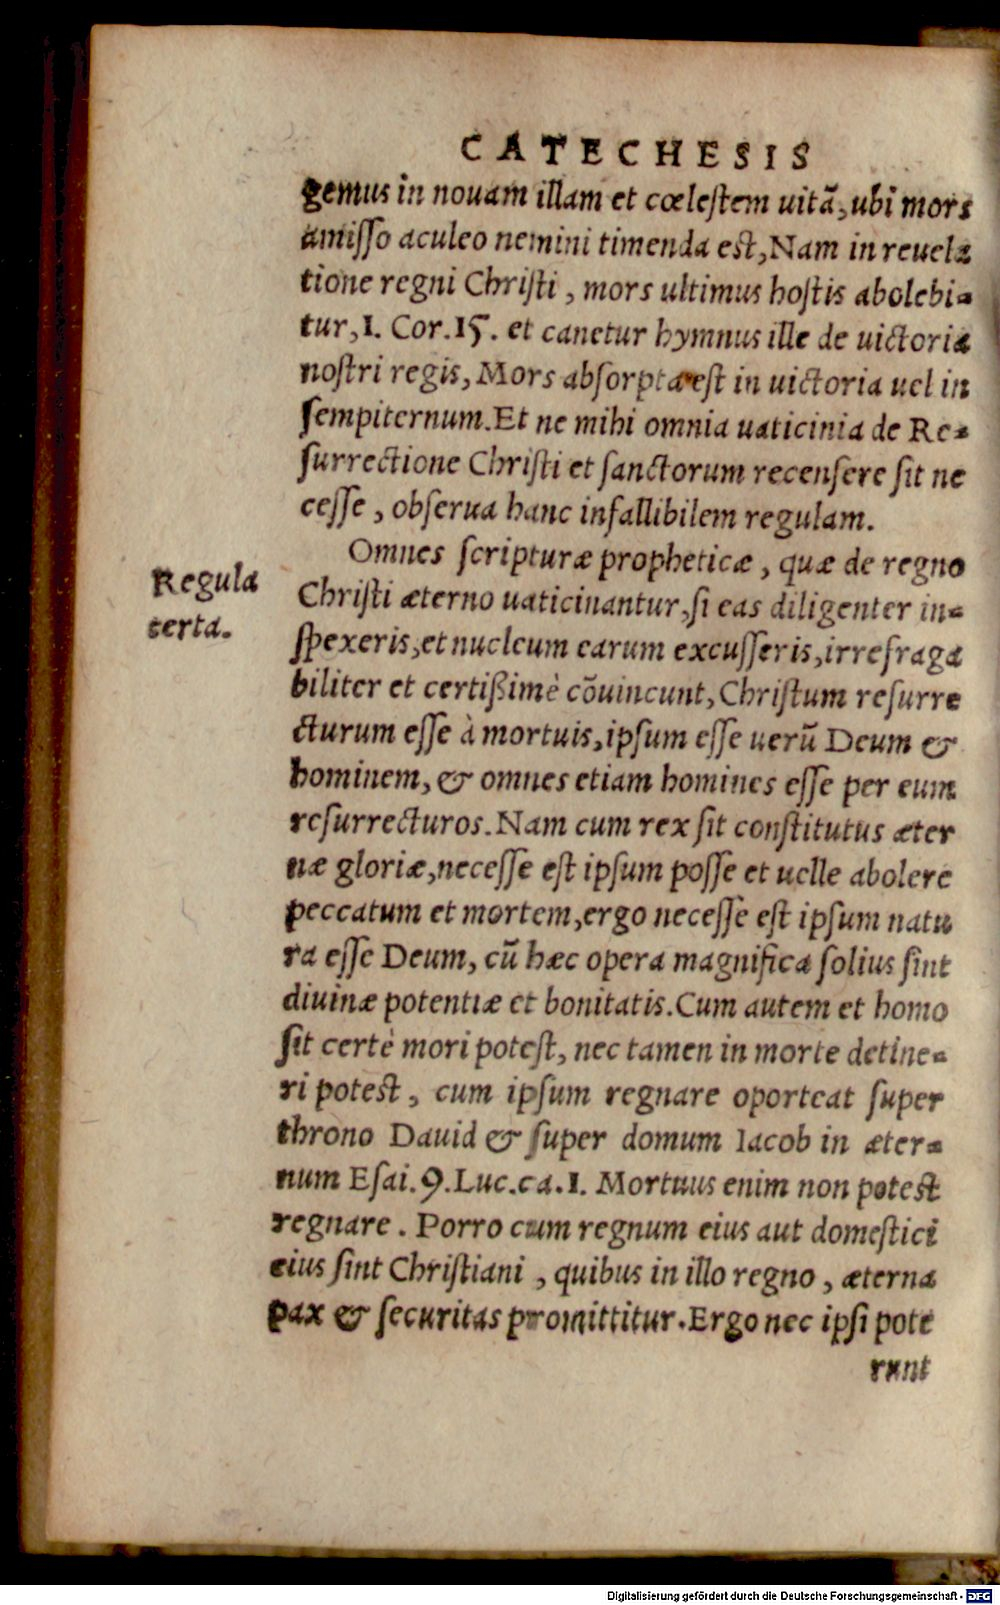 CATECHESIS
gemus in nouam illam et cœlestem uitā, ubi mors
amisso aculeo nemini timenda est, Nam in reuela
tione regni Christi, mors ultimus hostis abolebi-
tur, 1. Cor. 15. et canetur hymnus ille de uictoria
nostri regis, Mors absorpta est in uictoria uel in
sempiternum. Et ne mihi omnia uaticinia de Re-
surrectione Christi et sanctorum recensere sit ne
cesse, obserua hanc infallibilem regulam.
Omnes scripturæ propheticæ, quæ de regno
Regula
certa.
Christi æterno uaticinantur, si eas diligenter in-
spexeris, et nucleum earum excusseris, irrefraga
biliter et certißimè cōuincunt, Christum resurre
cturum esse à mortuis, ipsum esse uerū Deum &
hominem, & omnes etiam homines esse per eum
resurrecturos. Nam cum rex sit constitutus æter
næ gloriæ, necesse est ipsum posse et uelle abolere
peccatum et mortem, ergo necesse est ipsum natu
ra esse Deum, cū hæc opera magnifica solius sint
diuinæ potentiæ et bonitatis. Cum autem et homo
sit certè mori potest, nec tamen in morte detine-
ri potest, cum ipsum regnare oporteat super
throno Dauid & super domum Iacob in æter-
num Esai. 9. Luc. ca. 1. Mortuus enim non potest
regnare. Porro cum regnum eius aut domestici
eius sint Christiani, quibus in illo regno, æterna
pax & securitas promittitur. Ergo nec ipsi pote
runt
Digitalisierung gefördert durch die Deutsche Forschungsgemeinschaft - DFG